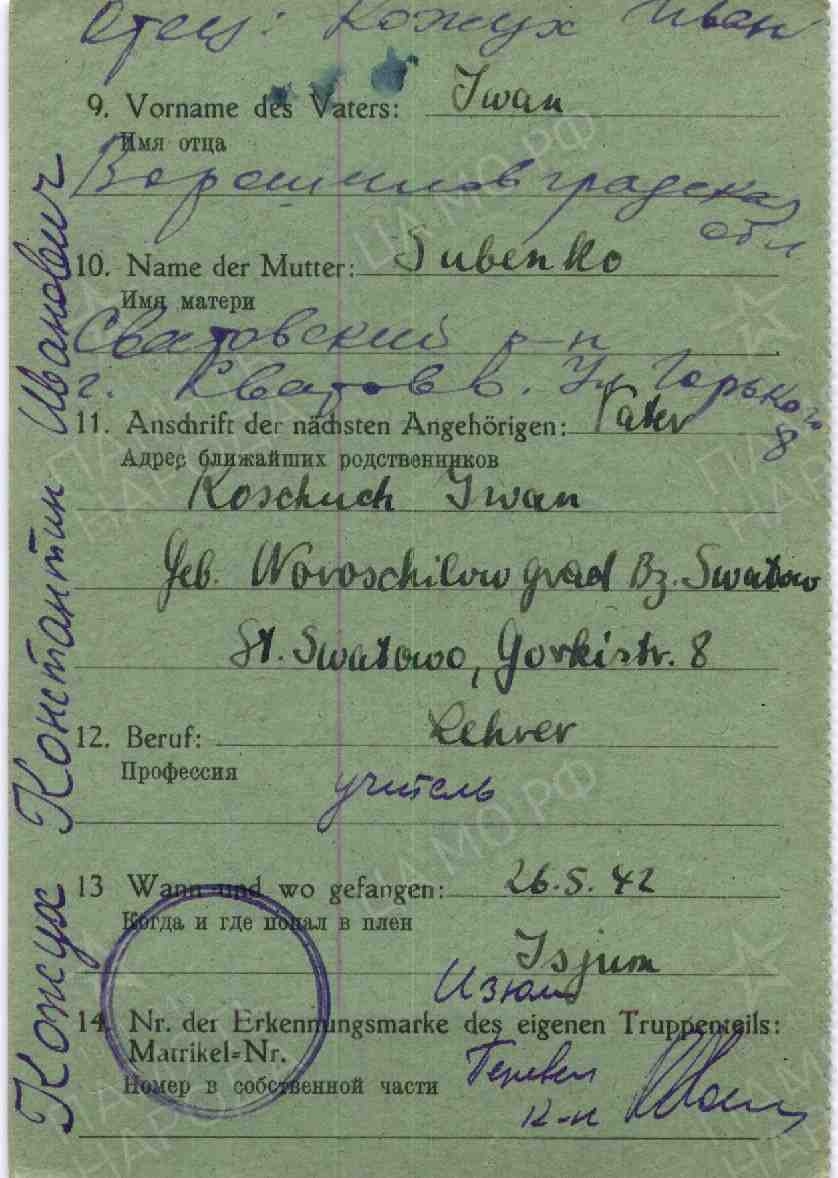 Отец: Кожух Иван
9. Vorname des Vaters: Iwan
Имя отца
Ворошиловградская
обл
10. Name der Mutter: Subenko
Имя матери
Сватовский р-н
г. Сватов в. Ул Горького
8
11. Anschrift der nächsten Angehörigen: Vater
Адрес ближайших родственников
Koschuch Iwan
Geb. Woroschilowgrad Bz. Swatow
St. Swatowo, Gorkistr. 8
12. Beruf: Lehrer
Профессия
учитель
13 Wann und wo gefangen: 26.5.42
Когда и где попал в плен
Isjum
Изюм
14. Nr. der Erkennungsmarke des eigenen Truppenteils:
Matrikel-Nr.
Номер в собственной части
Перевел
к-н
Кожух Константин Иванович
ЦА МО РФ